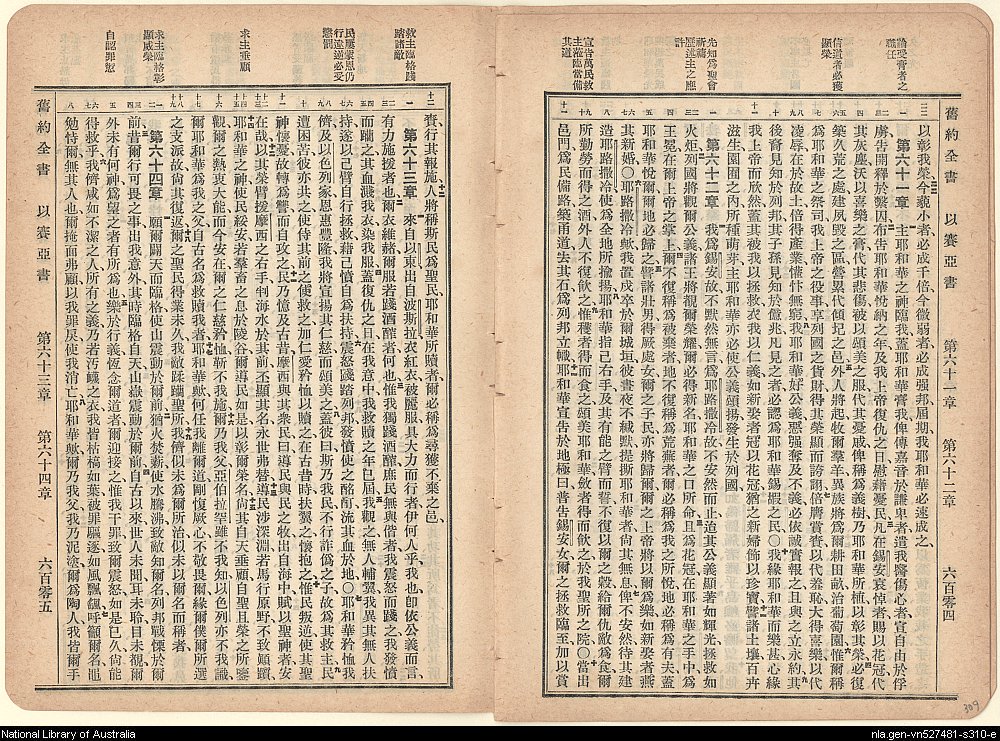 論受膏者之
職任
信道者必獲
顯榮
先知爲聖會
祈禱
歷述主之應
許
宣告萬民救
主涖臨當備
其道
舊約全書 以賽亞書 第六十一章 第六十二章 六百零四
以彰我榮今藐小者必成千倍今微弱者必成强邦屆期我耶和華必速成之
第六十一章 主耶和華之神臨我蓋耶和華膏我俾傳嘉音於謙卑者遣我醫傷心者宣自由於俘
虜告開釋於繫囚布告耶和華悅納之年及我上帝復仇之日慰藉憂民凡在錫安哀悼者賜以花冠代
其灰塵沃以喜樂之膏代其悲傷被以頌美之服代其憂戚俾稱爲義樹乃耶和華所植以彰其榮必復
築久荒之處建夙毀之區營累代傾圮之邑外人將起牧爾羣羊異族將爲爾耕田畝治葡萄園惟爾稱
爲耶和華之祭司我上帝之役事享列國之貨財得其榮顯而誇詡倍膺賞賚以代羞恥大得喜樂以代
凌辱在於故土倍得產業懽忭無窮我耶和華好公義惡强奪及不義必依誠實報之且與之立永約其
後裔見知於列邦其子孫見知於億兆凡見之者必認爲耶和華錫嘏之民○我緣耶和華而樂甚心緣
我上帝而欣然蓋其衣我以拯救被我以義如新娶者冠以花冠猶之新婦飾以珍寶譬諸土壤百卉
滋生園囿之內所種萌芽主耶和華亦必使公義頌揚發生於列國
第六十二章 我爲錫安故不默然無言爲耶路撒冷故不安然而止迨其公義顯著如輝光拯救如
火炬列國將觀爾公義諸王將覩爾榮耀爾必得新名耶和華之口所命且爲花冠在耶和華之手中爲
王冕在爾上帝之掌上爾不復稱爲被棄者地不復稱爲荒蕪者爾必稱爲我之所悅地必稱爲有夫蓋
耶和華悅爾爾地必歸之譬諸壯男得厥處女爾之子民亦將歸爾爾之上帝將以爾爲樂如新娶者燕
其新婚○耶路撒冷歟我置戍卒於爾城垣彼晝夜不緘默提撕耶和華者尙其無息俾不安然待其建
造耶路撒冷使爲全地所揄揚耶和華指己右手及其有能之臂而誓曰我不復以爾之穀給爾仇敵爲食
所勤勞而得之酒外人不復飲之惟穫者得而食之頌美耶和華斂者得而飲之於我聖所之院○當出
邑門爲民備路築甬道去其石爲列邦立幟耶和華宣告於地極曰普告錫安女爾之拯救臨至加以賞
救主臨格踐
踏諸敵
民屢蒙恩仍
行違逆必受
懲罰
求主垂顧
求主臨格彰
顯威榮
自認罪愆
賚行其報施人將稱斯民爲聖民耶和華所贖者爾必稱爲尋獲不棄之邑
第六十三章 來自以東出自波斯拉衣紅衣被麗服具大力而行者伊何人乎我也卽依公義而言
有力施援者也爾衣維赭爾服若踐酒醡者何也惟我獨踐酒醡庶民無與偕者我震怒而踐之我發憤
而蹦之其血濺我衣染我服蓋復仇之日在我意中我救贖之年已屆我觀之無人輔翼我異其無人扶
持遂以己臂自行拯救藉己憤自爲扶持震怒踐踏列邦發憤使之酩酊流其血於地○耶和華矜恤我
儕及以色列家恩惠豐隆我將宣揚其仁慈而頌美之蓋彼曰斯乃我民不行詐僞之子故爲其救主民
遭困苦彼亦與其苦使侍其前之使救之加仁愛矜恤以贖之自昔時扶翼之懷抱之惟民叛逆使其聖
神懷憂故轉爲讐而自攻之民乃憶及古昔摩西與其衆民曰導民與民之牧出自海中賦以聖神者安
在哉以其榮臂援摩西之右手判海水於其前丕顯其名永世弗替導民涉深淵若馬行原野不致顚躓
耶和華之神使民綏安若羣畜之息於陵谷爾導民如是以彰爾榮名尙其自天垂顧自聖且榮之所鑒
觀爾之熱衷大能而今安在爾之仁慈矜恤靳不我施爾乃我父亞伯拉罕雖不我知以色列亦不我識
爾耶和華爲我之父自古名爲救贖我者耶和華歟何任我離爾道剛愎厥心不敬畏爾緣爾僕緣爾所選
之支派故尙其復返爾之聖民得業未久我敵蹂躪聖所我儕似未爲爾所治似未以爾名而稱者
第六十四章 願爾闢天而臨格使山震動於爾前猶火焚薪使水騰沸致敵知爾名列邦戰慄於爾
前昔爾行可畏之事出我意外其時臨格自天山嶽震動於爾前自古以來世人未聞耳未聆目未覩爾
外未有何神爲望之者有所爲也樂於行義恆念爾道者爾迎接之惟我干罪致爾震怒如是已久尙能
得救乎我儕咸如不潔之人所有之義乃若汚衊之衣我皆枯槁如葉被罪驅逐如風飄颻呼籲爾名黽
勉恃爾無其人也爾掩面弗顧以我罪戾使我消亡耶和華歟爾乃我父我乃泥塗爾爲陶人我皆爾手
舊約全書 以賽亞書 第六十三章 第六十四章 六百零五
309
National Library of Australia
nla.gen-vn527481-s310-e